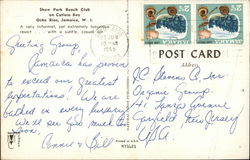 Shaw Park Beach Club
on Cutlass Bay
Ocho Rios, Jamaica, W. I.
A very informal, yet extremely luxurious
resort with a subtle, casual
Greeting Group,
Jamaica has proven
to exceed our greatest
expectations! We are
bathed in every luxury.
We'll see you much too
soon.
Connie & Bill
POST CARD
Address
JC Thomas Co, Inc
Organic Group
Garfield New Jersey
USA.